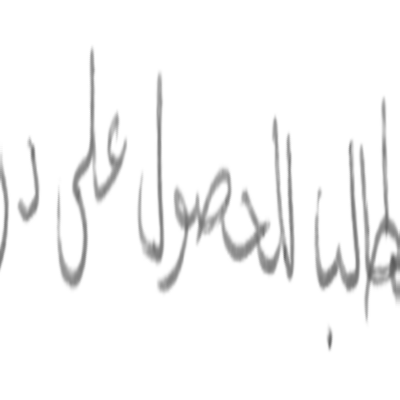 الطالب للحصول على در